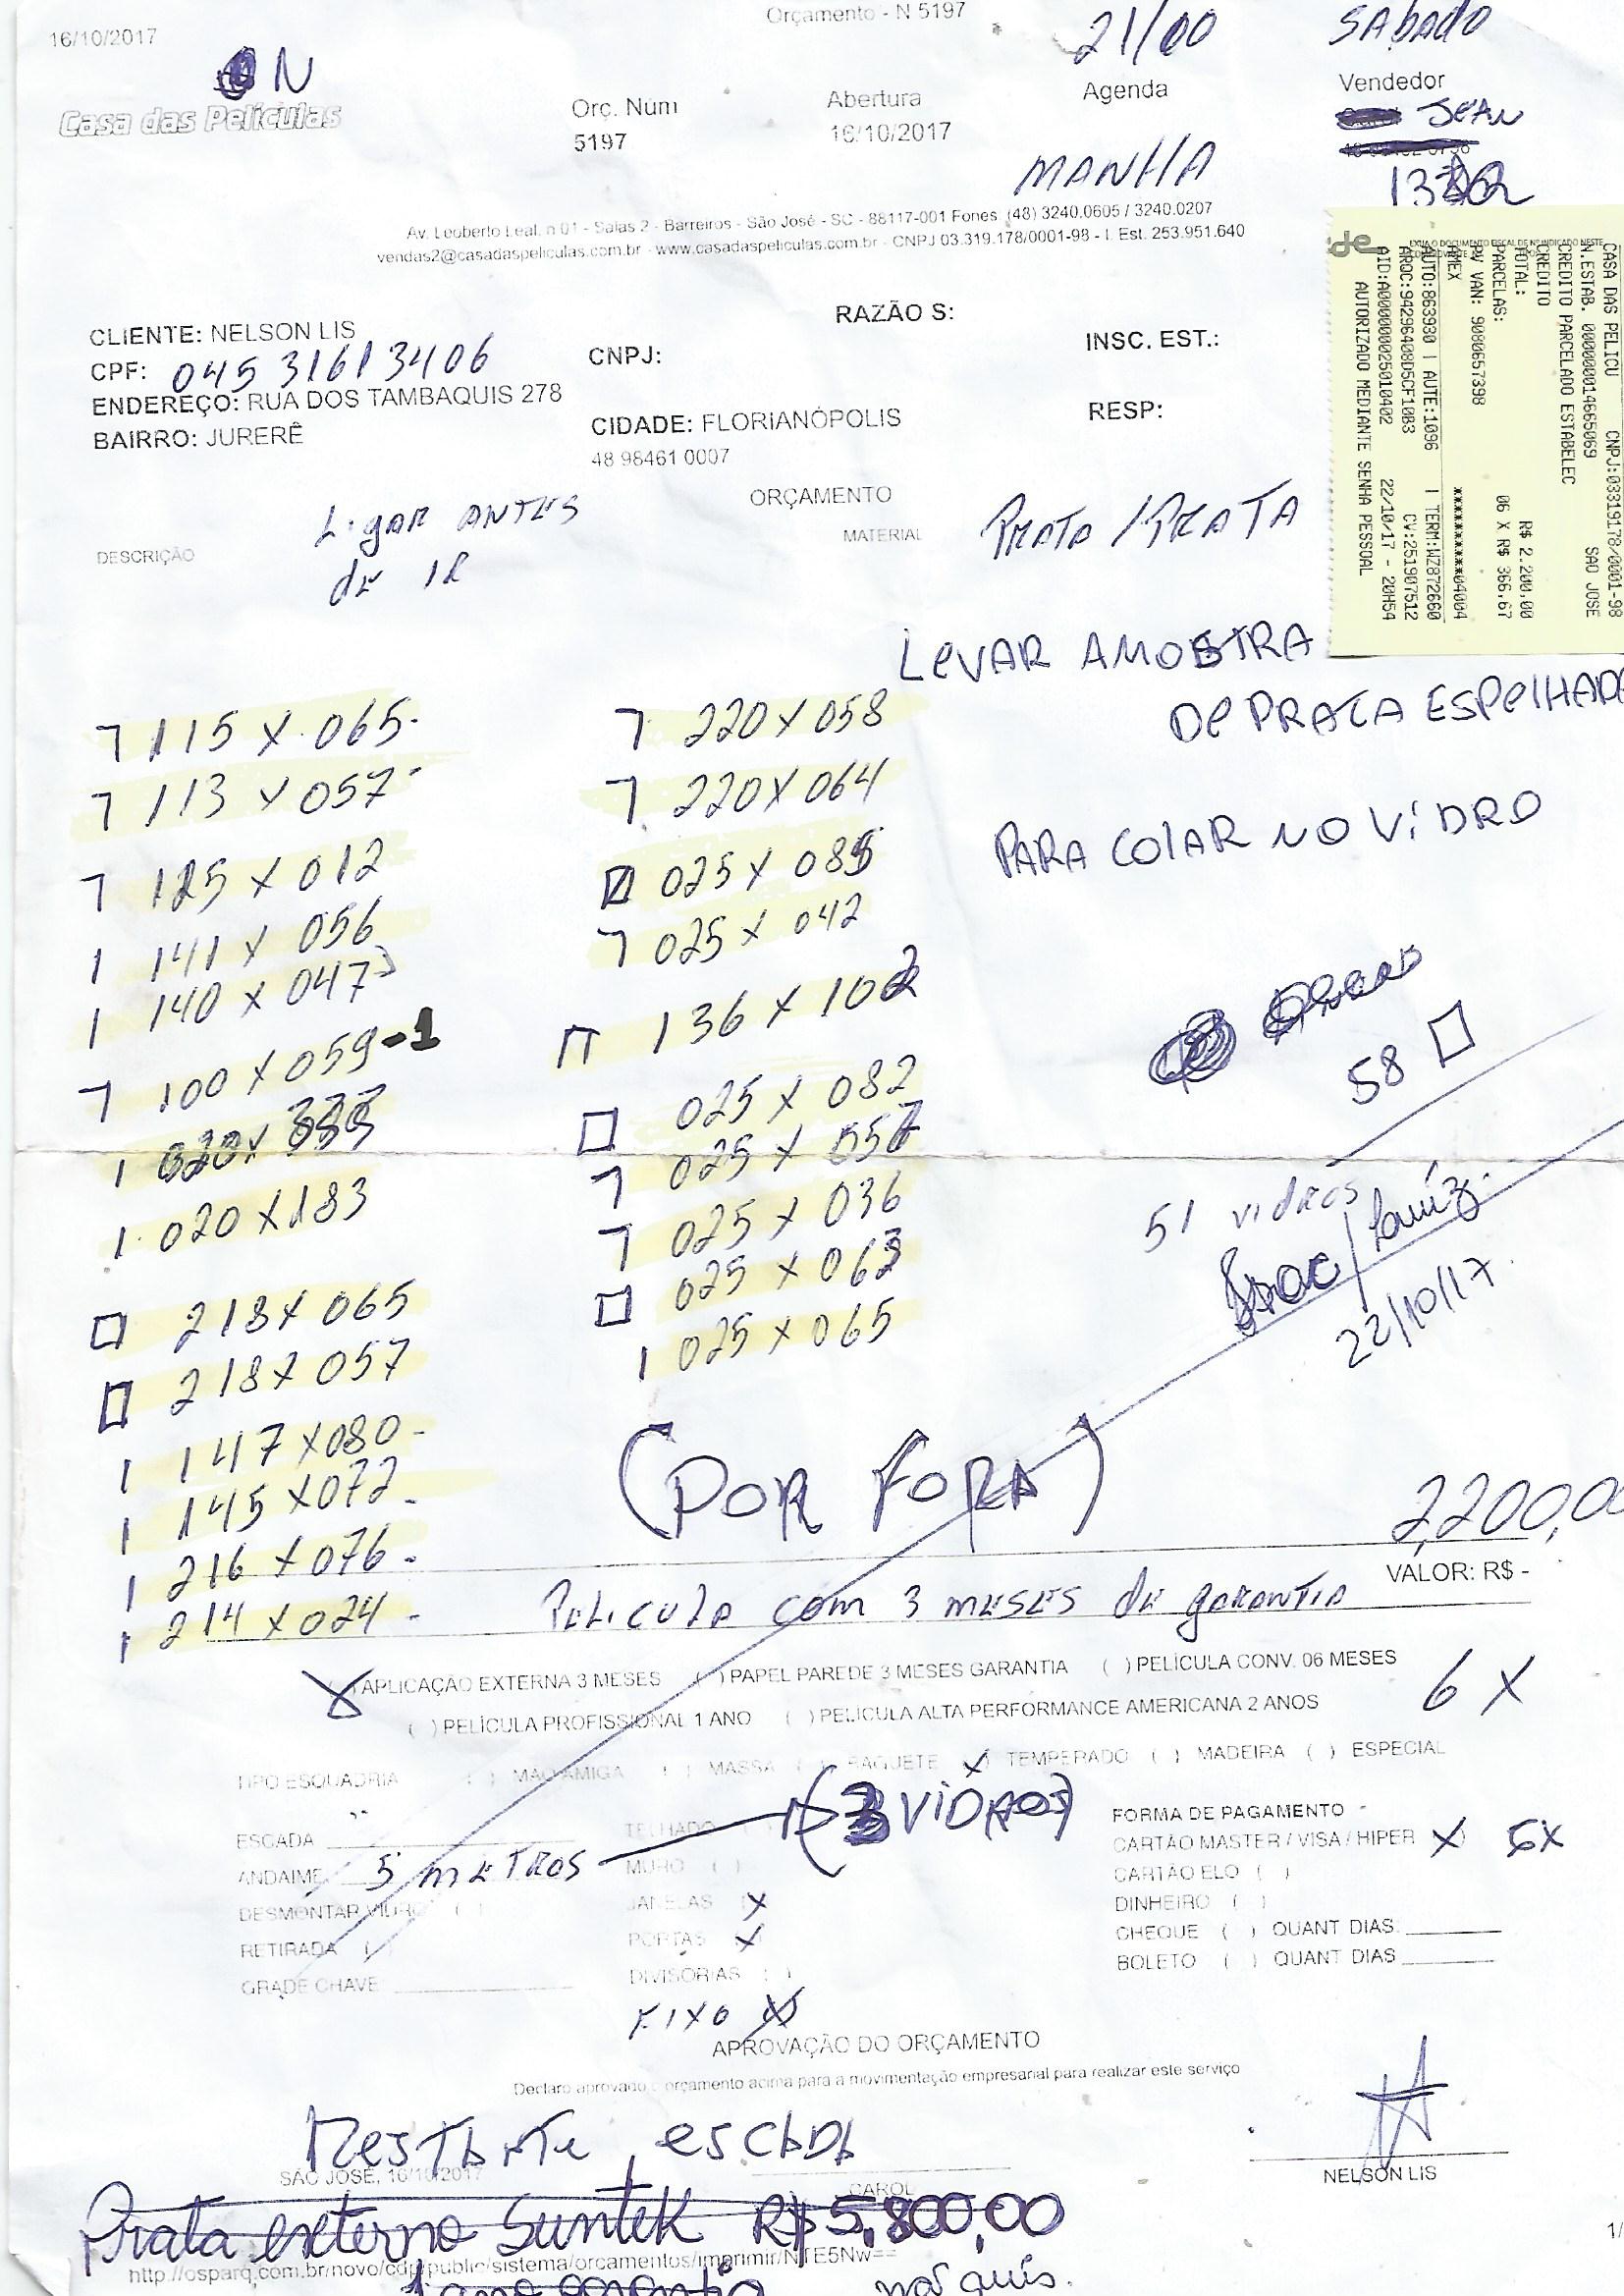 16/10/2017
Orçamento - N 5197
21/00
SABADO
N
Casa das Películas
Orç. Núm
5197
Abertura
16/10/2017
Agenda
MANHA
Vendedor
JEAN
Av. Leoberto Leal, n 01 - Salas 2 - Barreiros - São José - SC - 88117-001 Fones (48) 3240.0605 / 3240.0207
vendas2@casadaspeliculas.com.br - www.casadaspeliculas.com.br - CNPJ 03.319.178/0001-98 - I. Est. 253.951.640
CASA DAS PELICU CNPJ:03319178/0001-98
N.ESTAB. 000000014665069 SAO JOSE
CREDITO PARCELADO ESTABELEC
CREDITO
TOTAL: R$ 2.200,00
PARCELAS: 06 X R$ 366,67
PV VAN: 9080657398
AMEX ***********04004
AUTO:863930 | AUTE:1096 | TERM:WZ872660
ARQC:94296408D5CF10B3 CV:251907512
AID:A00000002501040​2 22/10/17 - 20H54
AUTORIZADO MEDIANTE SENHA PESSOAL
CLIENTE: NELSON LIS
CPF: 045 31613406
ENDEREÇO: RUA DOS TAMBAQUIS 278
BAIRRO: JURERÊ
RAZÃO S:
CNPJ:
INSC. EST.:
CIDADE: FLORIANÓPOLIS
48 98461 0007
RESP:
ORÇAMENTO
DESCRIÇÃO
MATERIAL
LigAR ANTES
de IR
PRATA / PRATA
LeVAR AMOSTRA
De PRATA ESPelHADA
PARA COlAR NO ViDRO
115 X 065
113 X 057
125 X 012
141 X 056
140 X 047
100 X 059 -1
020 X 183
218 X 065
218 X 057
147 X 080
145 X 072
216 X 076
214 X 024
220 X 058
220 X 064
025 X 085
025 X 042
136 X 102
025 X 082
025 X 057
025 X 036
025 X 063
025 X 065
58
51 vidros
Luiz
22/10/17
(POR FORA)
2,200,00
VALOR: R$ -
PELICULA com 3 MESES de garantia
( ) APLICAÇÃO EXTERNA 3 MESES ( ) PAPEL PAREDE 3 MESES GARANTIA ( ) PELÍCULA CONV. 06 MESES
( ) PELÍCULA PROFISSIONAL 1 ANO ( ) PELICULA ALTA PERFORMANCE AMERICANA 2 ANOS
6 X
TIPO ESQUADRIA ( ) MAOAMIGA ( ) MASSA ( ) BAQUETE (X) TEMPERADO ( ) MADEIRA ( ) ESPECIAL
(3 ViDROS)
ESCADA
ANDAIME 5 METROS
DESMONTAR VIDRO ( )
RETIRADA ( )
GRADE CHAVE
TELHADO
MURO ( )
JANELAS X
PORTAS X
DIVISORIAS ( )
FIXO X
FORMA DE PAGAMENTO
CARTÃO MASTER / VISA / HIPER X 6X
CARTÃO ELO ( )
DINHEIRO ( )
CHEQUE ( ) QUANT DIAS
BOLETO ( ) QUANT DIAS
APROVAÇÃO DO ORÇAMENTO
Declaro aprovado o orçamento acima para a movimentação empresarial para realizar este serviço
esCADA
SÃO JOSÉ, 16/10/2017
CAROL
NELSON LIS
Prata externo Suntek R$ 5.800,00
http://osparq.com.br/novo/cdp/public/sistema/orcamentos/imprimir/NTE5Nw==
1 ano garantia não quis.
1/